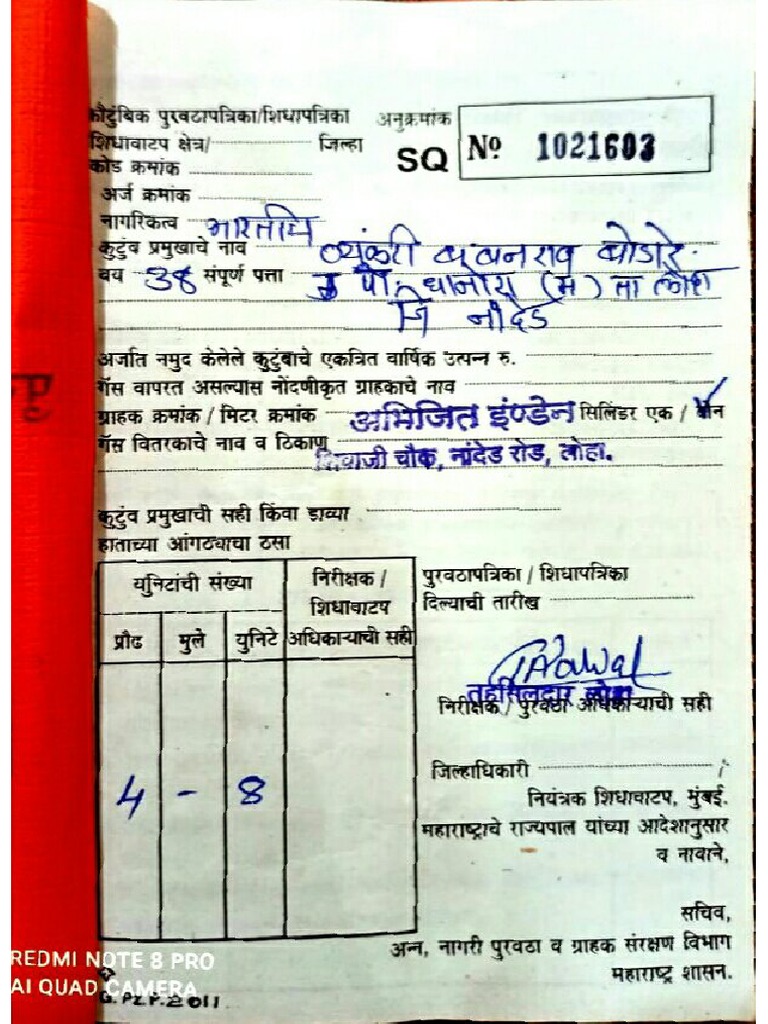 कौटुंबिक पुरवठापत्रिका/शिधापत्रिका अनुक्रमांक
शिधावाटप क्षेत्र/ जिल्हा SQ Nº 1021603
कोड क्रमांक
अर्ज क्रमांक
नागरिकत्व भारतीय
कुटुंब प्रमुखाचे नाव व्यंकटी
वय 38 संपूर्ण पत्ता मु पो. धानोरा (म) ता लोहा
जि नांदेड
अर्जात नमुद केलेले कुटुंबाचे एकत्रित वार्षिक उत्पन्न रु.
गॅस वापरत असल्यास नोंदणीकृत ग्राहकाचे नाव
ग्राहक क्रमांक / मिटर क्रमांक अभिजित इंण्डेन सिलिंडर एक / दोन
गॅस वितरकाचे नाव व ठिकाण शिवाजी चौक, नांदेड रोड, लोहा.
कुटुंव प्रमुखाची सही किंवा डाव्या
हाताच्या आंगठ्याचा ठसा
युनिटांची संख्या निरीक्षक / शिधावाटप अधिकाऱ्याची सही
प्रौढ मुले युनिटे
4 - 8
पुरवठापत्रिका / शिधापत्रिका
दिल्याची तारीख
तहसिलदार लोहा
निरीक्षक / पुरवठा अधिकाऱ्याची सही
जिल्हाधिकारी /
नियंत्रक शिधावाटप, मुंबई.
महाराष्ट्राचे राज्यपाल यांच्या आदेशानुसार
व नावाने,
सचिव,
अन्न, नागरी पुरवठा व ग्राहक संरक्षण विभाग
महाराष्ट्र शासन.
REDMI NOTE 8 PRO
AI QUAD CAMERA
G.P.Z.P.2011